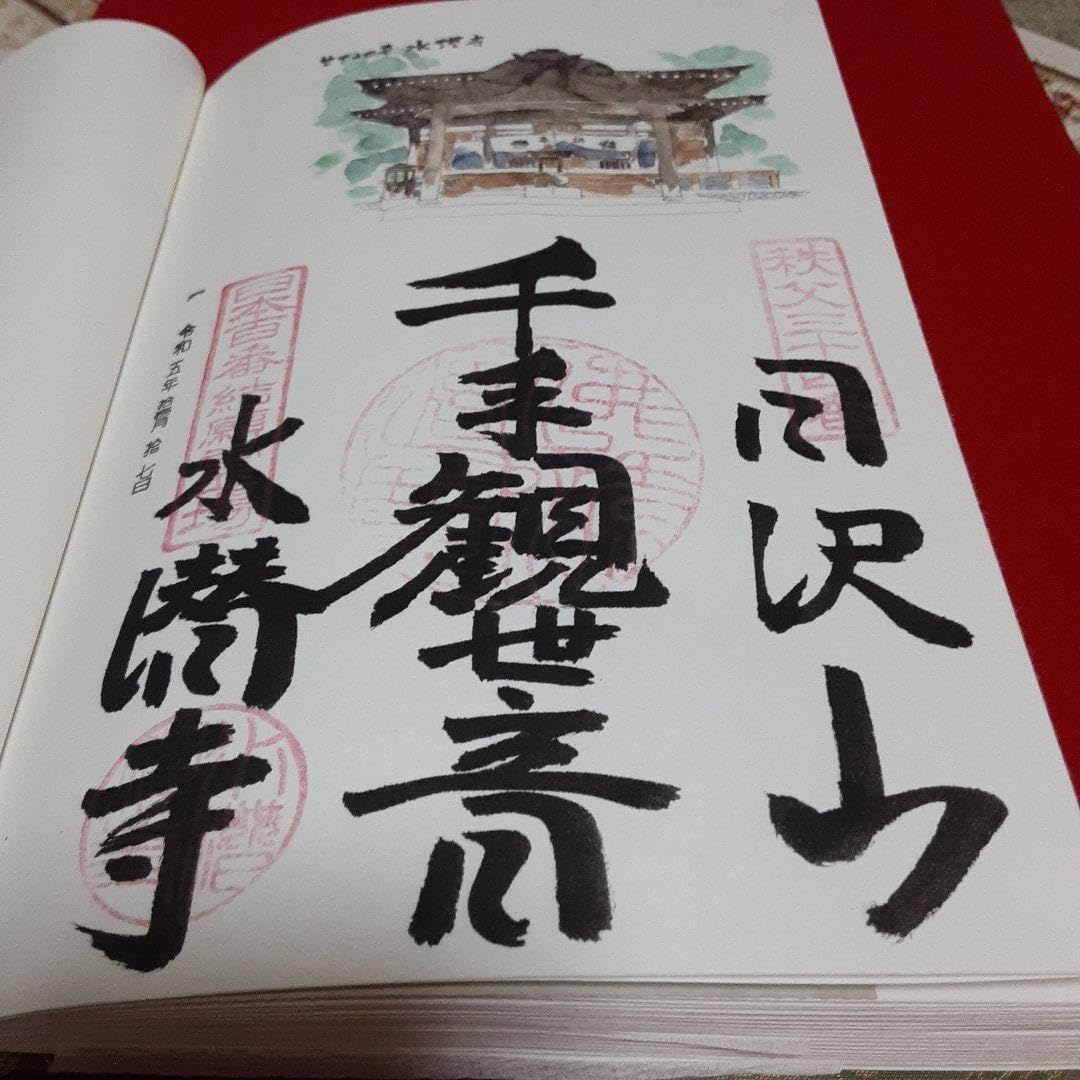 第三十四番 水潜寺
秩父三十四番
日沢山
千手観世音
水潜寺
日本百番結願
令和五年
拾七日